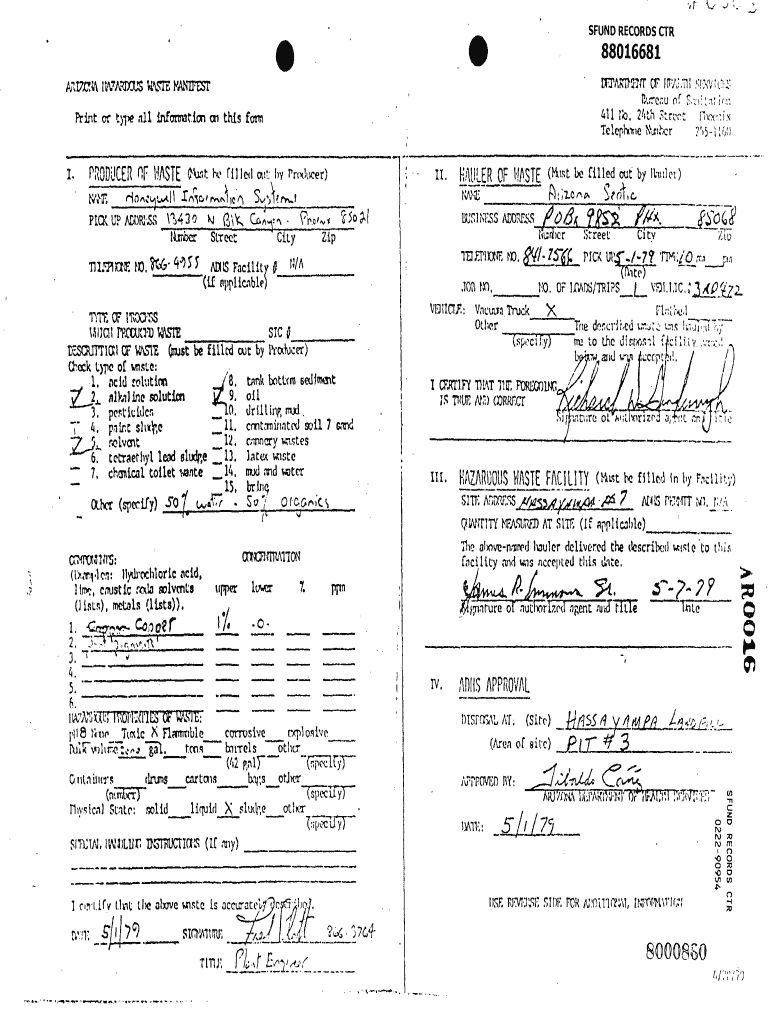 SFUND RECORDS CTR
88016681
ARIZONA HAZARDOUS WASTE MANIFEST
Print or type all information on this form
DEPARTMENT OF HEALTH SERVICES
Bureau of Sanitation
411 No. 24th Street Phoenix
Telephone Number 255-1160
I. PRODUCER OF WASTE (Must be filled out by Producer)
NAME Honeywell Information Systems
PICK UP ADDRESS 13430 N Blk Canyon. Phoenix 85021
Number Street City Zip
TELEPHONE NO. 866-4955 ADHS Facility # N/A
(if applicable)
TYPE OF PROCESS
WHICH PRODUCED WASTE SIC #
DESCRIPTION OF WASTE (must be filled out by Producer)
Check type of waste:
1. acid solution
2. alkaline solution
3. pesticides
4. paint sludge
5. solvent
6. tetraethyl lead sludge
7. chemical toilet waste
8. tank bottom sediment
9. oil
10. drilling mud
11. contaminated soil & sand
12. cannery wastes
13. latex waste
14. mud and water
15. brine
Other (specify) 50% water - 50% organics
COMPONENTS: CONCENTRATION
(Examples: Hydrochloric acid,
lime, caustic soda solvents upper lower % ppm
(lists), metals (lists)).
1. Copper 1% .0.
2.
3.
4.
5.
6.
HAZARDOUS PROPERTIES OF WASTE:
pH 8 None Toxic X Flammable corrosive explosive
Bulk volume gal. tons barrels other
(42 gal) (specify)
Containers drums cartons bags other
(number) (specify)
Physical State: solid liquid X sludge other
(specify)
SPECIAL HANDLING INSTRUCTIONS (If any)
I certify that the above waste is accurately described.
DATE 5/1/79 SIGNATURE 866-3764
TITLE Plant Engineer
II. HAULER OF WASTE (Must be filled out by Hauler)
NAME Arizona Septic
BUSINESS ADDRESS P O Box 9852 PHX 85068
Number Street City Zip
TELEPHONE NO. 841-7566 PICK UP 5-1-79 TIME 10 am pm
(Date)
JOB NO. NO. OF LOADS/TRIPS 1 VEH.LIC. 3R0472
VEHICLE: Vacuum Truck X Flatbed
Other The described waste was hauled by
(specify) me to the disposal facility named
below and was accepted.
I CERTIFY THAT THE FOREGOING
IS TRUE AND CORRECT
Signature of authorized agent and title
III. HAZARDOUS WASTE FACILITY (Must be filled in by Facility)
SITE ADDRESS HASSAYAMPA ADHS PERMIT NO. N/A
QUANTITY MEASURED AT SITE (If applicable)
The above-named hauler delivered the described waste to this
facility and was accepted this date.
James R. 5-7-79
Signature of authorized agent and title Date
AR0016
IV. ADHS APPROVAL
DISPOSAL AT. (Site) HASSAYAMPA LANDFILL
(Area of site) PIT #3
APPROVED BY:
ARIZONA DEPARTMENT OF HEALTH SERVICES
DATE: 5/1/79
SFUND RECORDS CTR
0222-90954
USE REVERSE SIDE FOR ADDITIONAL INFORMATION
8000860